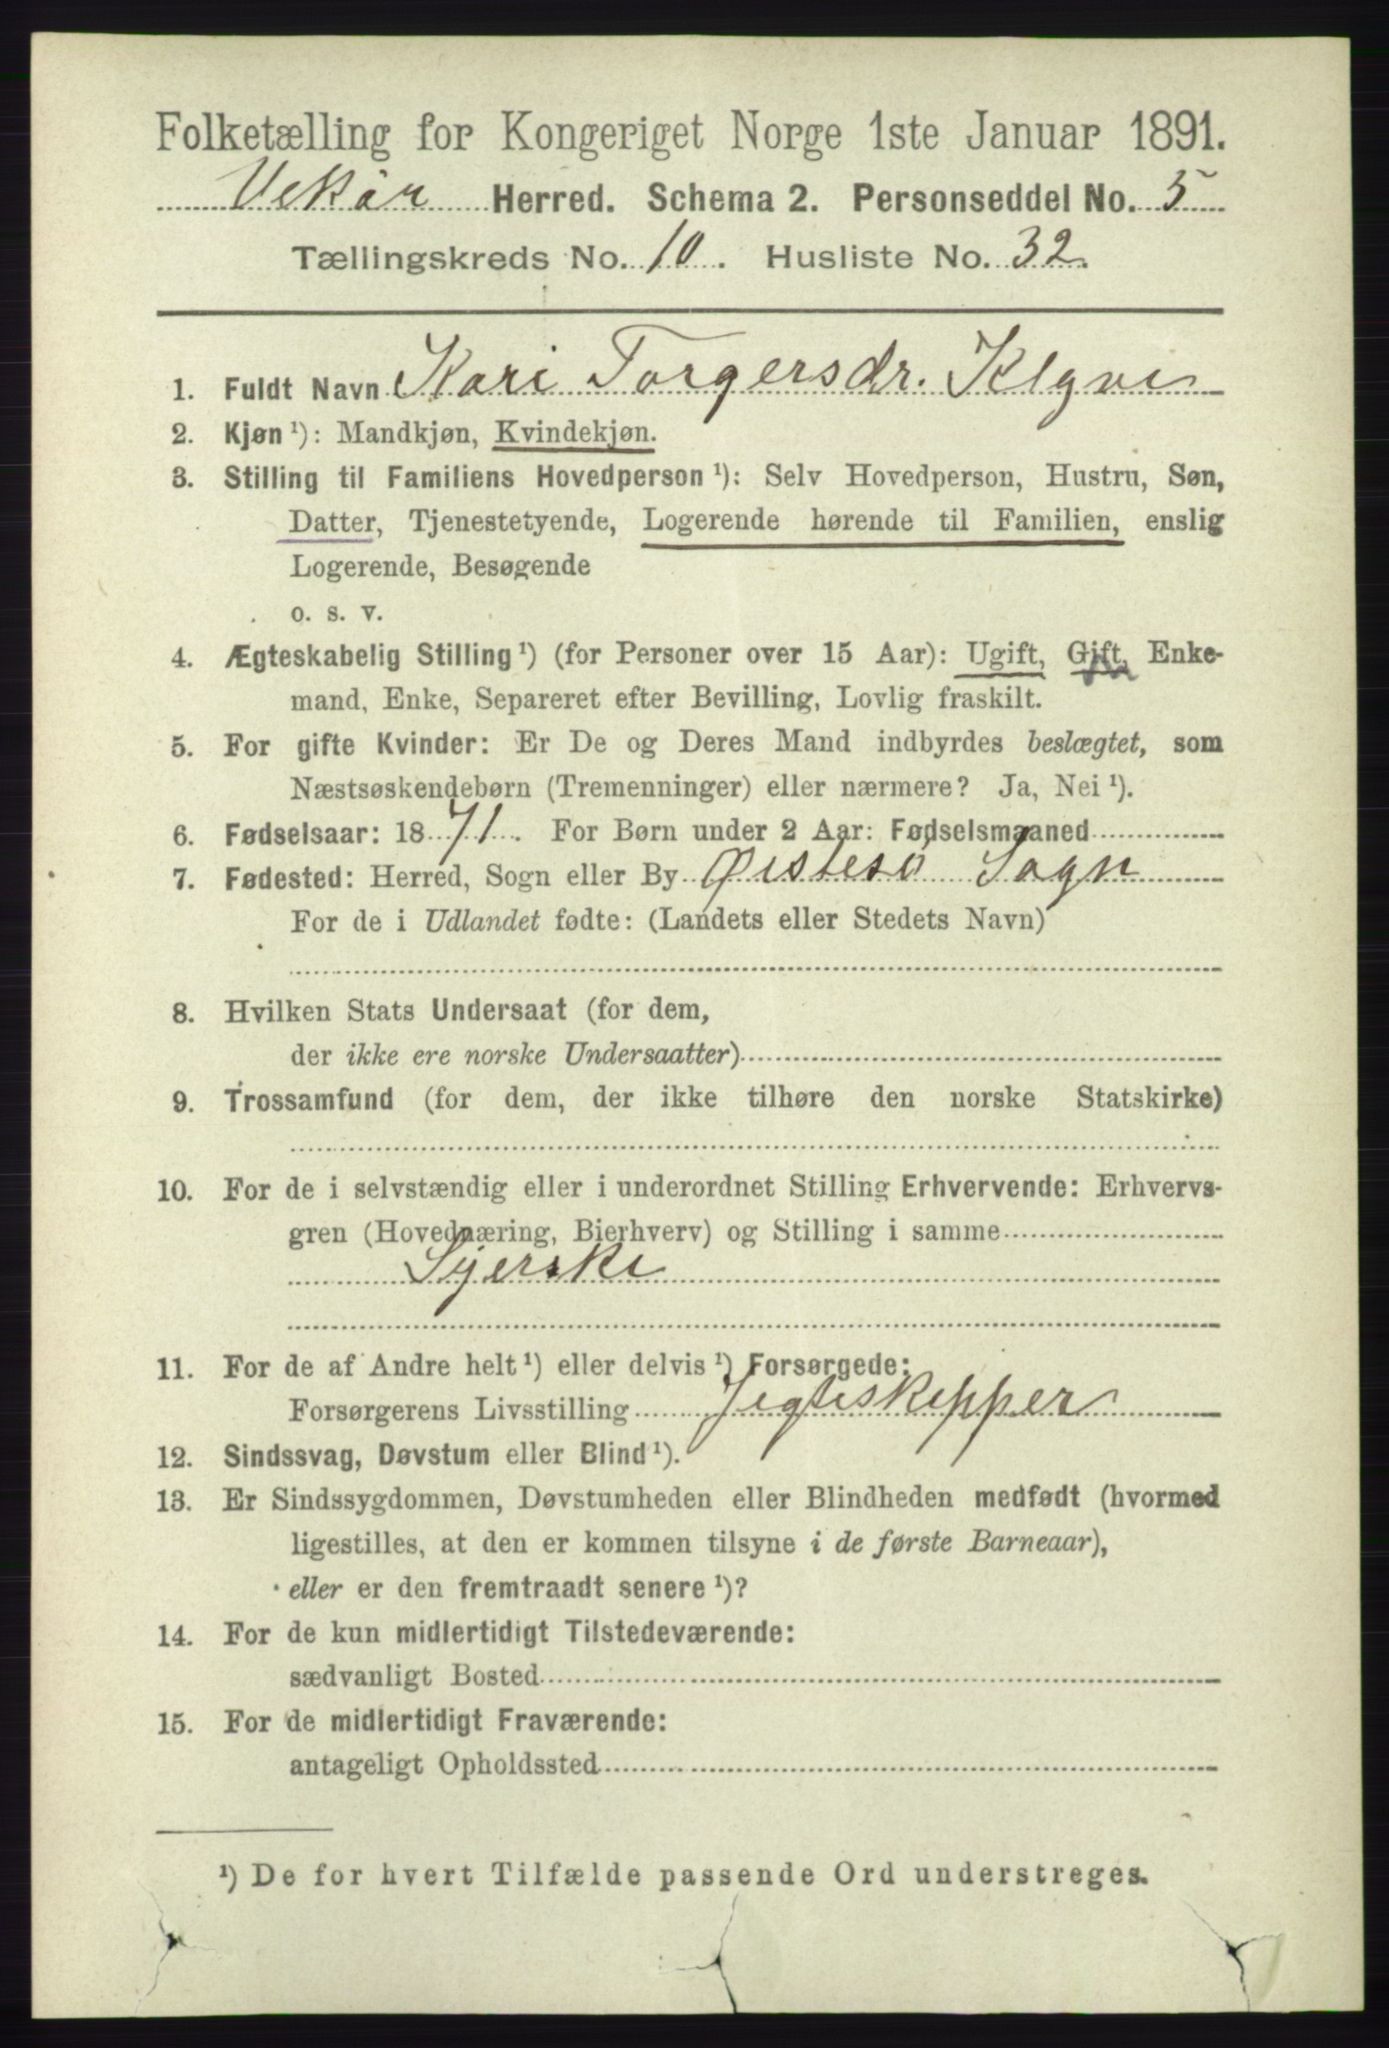 Folketælling for Kongeriget Norge 1ste Januar 1891.
Vikør Herred. Schema 2. Personseddel No. 5
Tællingskreds No. 10. Husliste No. 32.
1. Fuldt Navn Kari Torgersdr. Klyve
2. Kjøn ¹): Mandkjøn, Kvindekjøn.
3. Stilling til Familiens Hovedperson ¹): Selv Hovedperson, Hustru, Søn,
Datter, Tjenestetyende, Logerende hørende til Familien, enslig
Logerende, Besøgende
o. s. v.
4. Ægteskabelig Stilling ¹) (for Personer over 15 Aar): Ugift, Gift, Enke-
mand, Enke, Separeret efter Bevilling, Lovlig fraskilt.
5. For gifte Kvinder: Er De og Deres Mand indbyrdes beslægtet, som
Næstsøskendebørn (Tremenninger) eller nærmere? Ja, Nei ¹).
6. Fødselsaar: 1871. For Børn under 2 Aar: Fødselsmaaned
7. Fødested: Herred, Sogn eller By Østesø Sogn
For de i Udlandet fødte: (Landets eller Stedets Navn)
8. Hvilken Stats Undersaat (for dem,
der ikke ere norske Undersaatter)
9. Trossamfund (for dem, der ikke tilhøre den norske Statskirke)
10. For de i selvstændig eller i underordnet Stilling Erhvervende: Erhvervs-
gren (Hovednæring, Bierhverv) og Stilling i samme
Syerske
11. For de af Andre helt ¹) eller delvis ¹) Forsørgede:
Forsørgerens Livsstilling Jegteskipper
12. Sindssvag, Døvstum eller Blind ¹).
13. Er Sindssygdommen, Døvstumheden eller Blindheden medfødt (hvormed
ligestilles, at den er kommen tilsyne i de første Barneaar),
eller er den fremtraadt senere ¹)?
14. For de kun midlertidigt Tilstedeværende:
sædvanligt Bosted
15. For de midlertidigt Fraværende:
antageligt Opholdssted
¹) De for hvert Tilfælde passende Ord understreges.